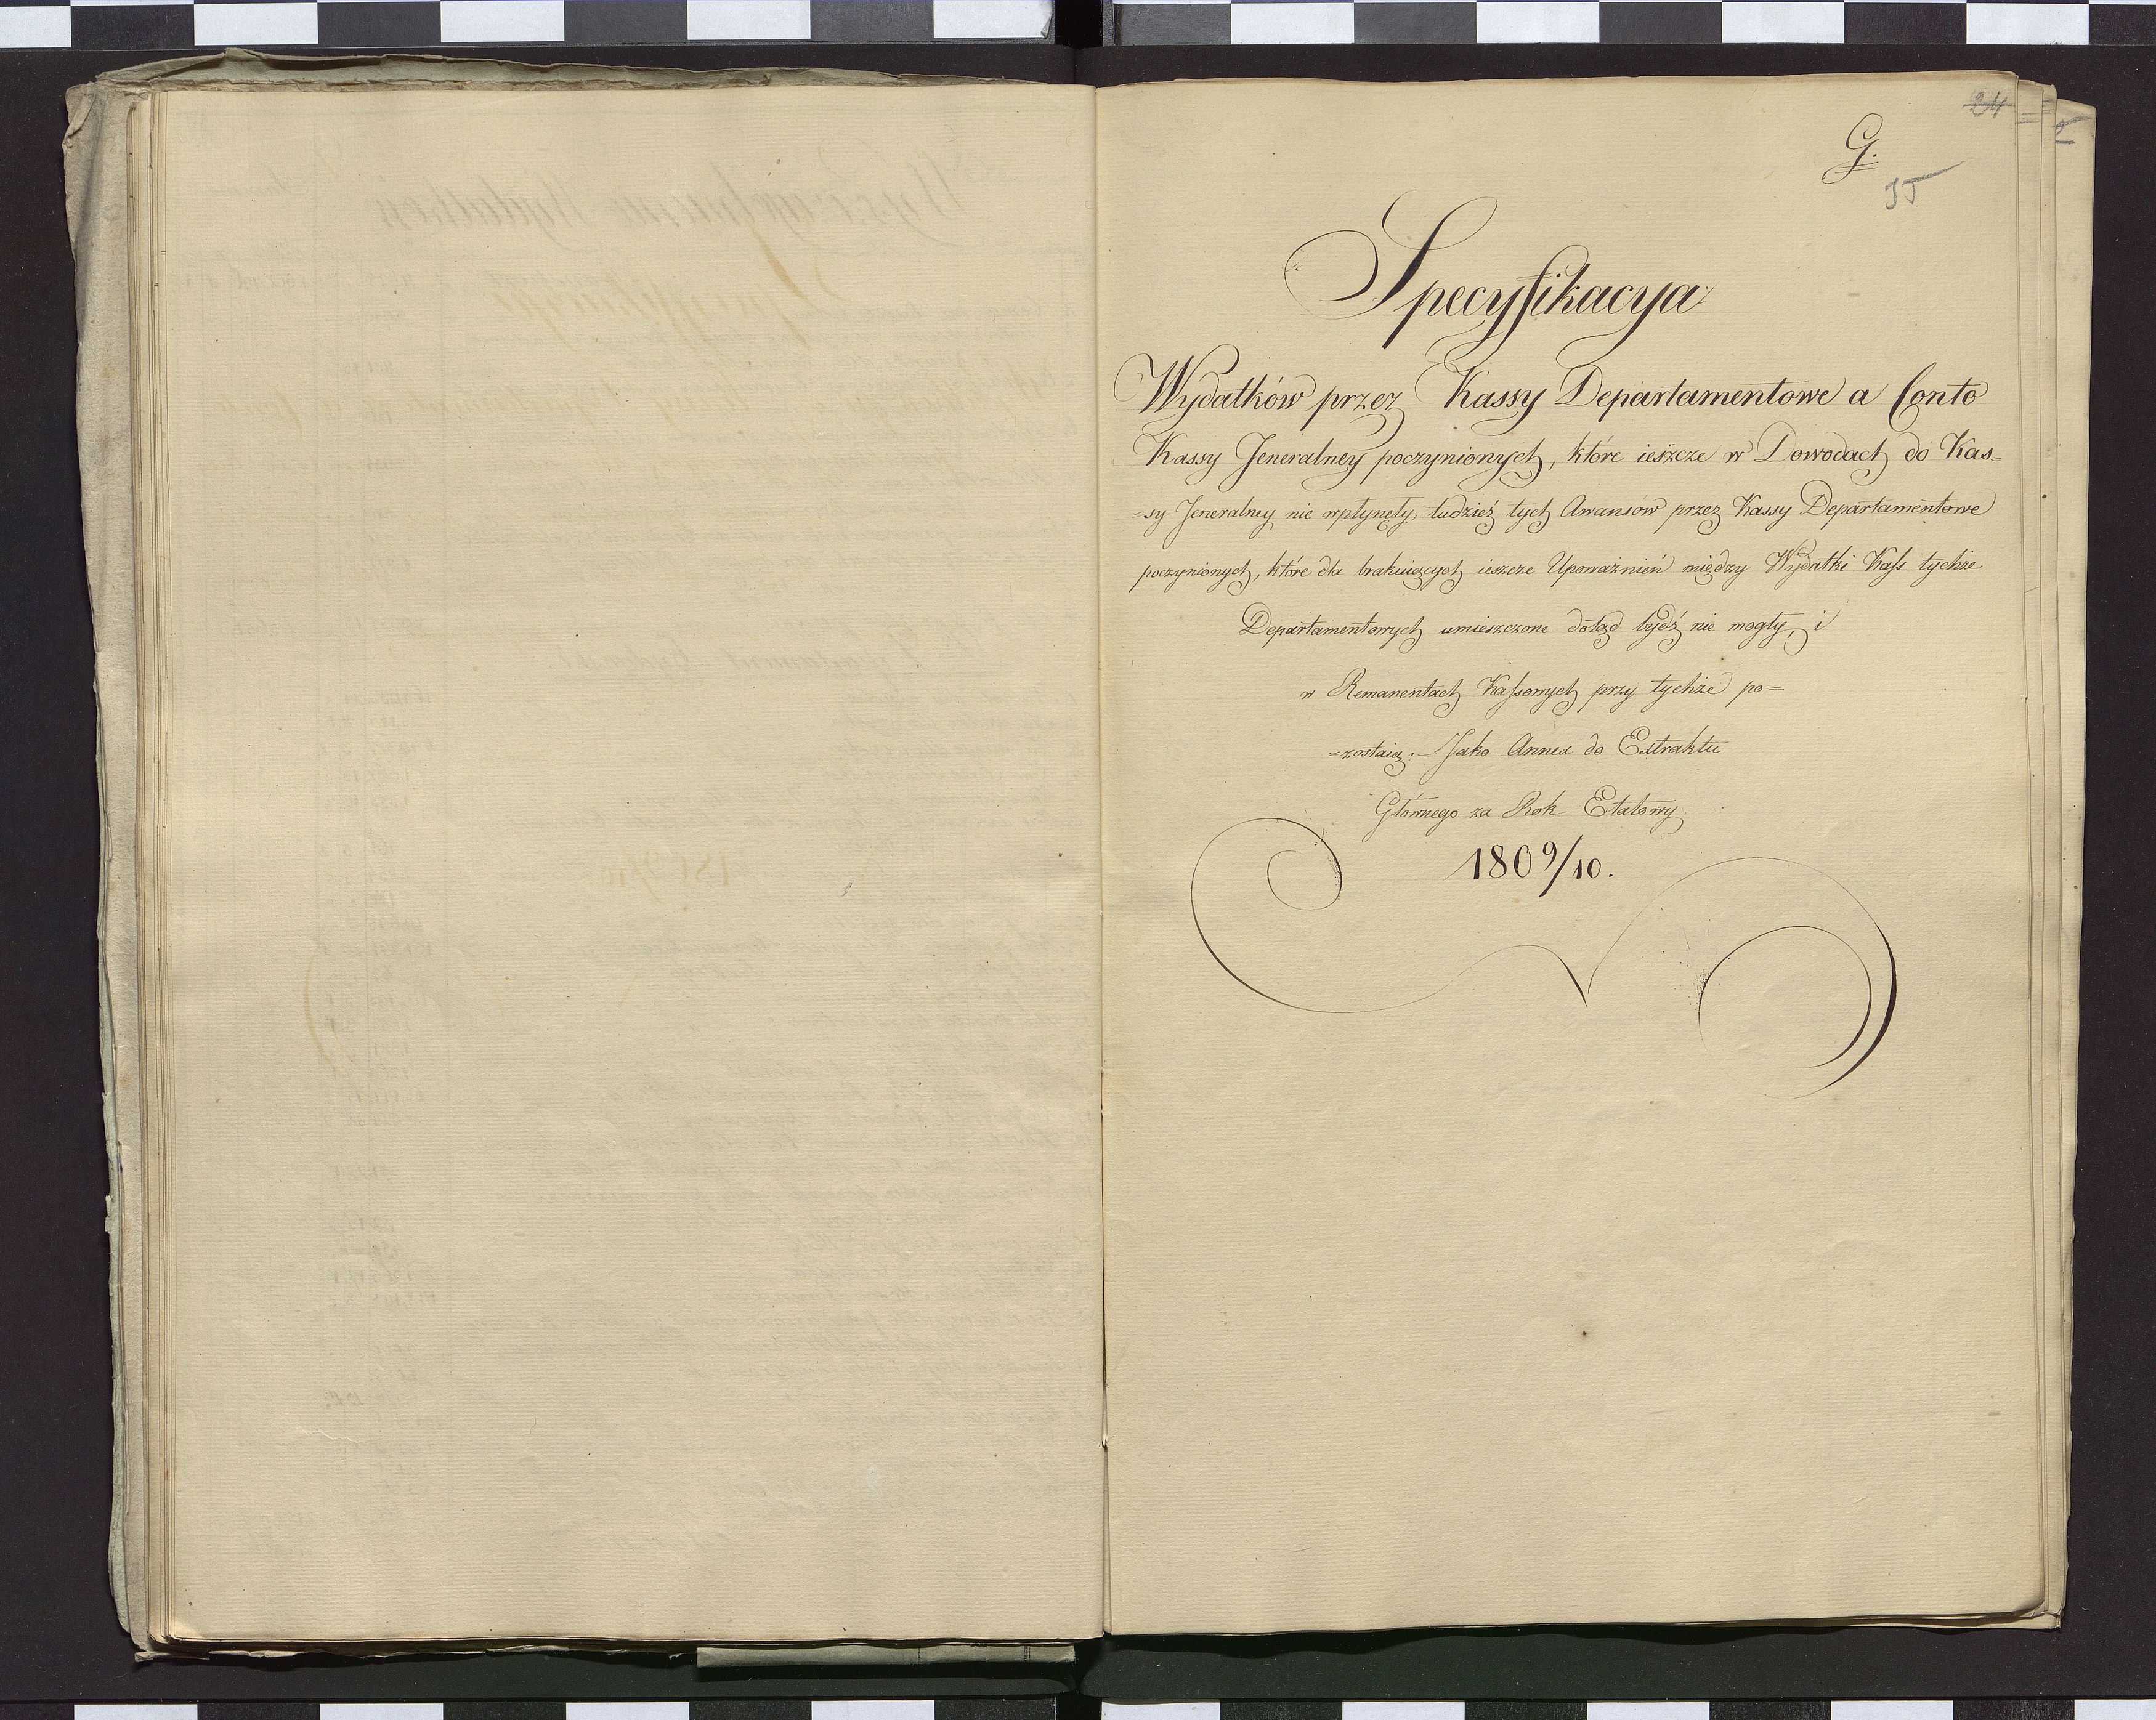 24
G.
35
Specyfikacya
Wydatków przez Kassy Departamentowe a Conto
Kassy Jeneralney poczynionych, które ieszcze w Dowodach do Kas=
=sy Jeneralney nie wpłynęły, tudzież tych Awansów przez Kassy Departamentowe
poczynionych, które dla brakuiących ieszcze Upoważnień między Wydatki Kass tychże
Departamentowych umieszczone dotąd bydź nie mogły, i
w Remanentach Kassowych przy tychże po=
=zostaią. Jako Annex do Extraktu
Głównego za Rok Etatowy
1809/10.